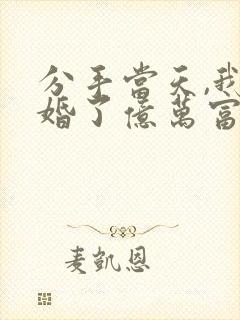 分手當天,我
婚了億萬富
麦凱恩